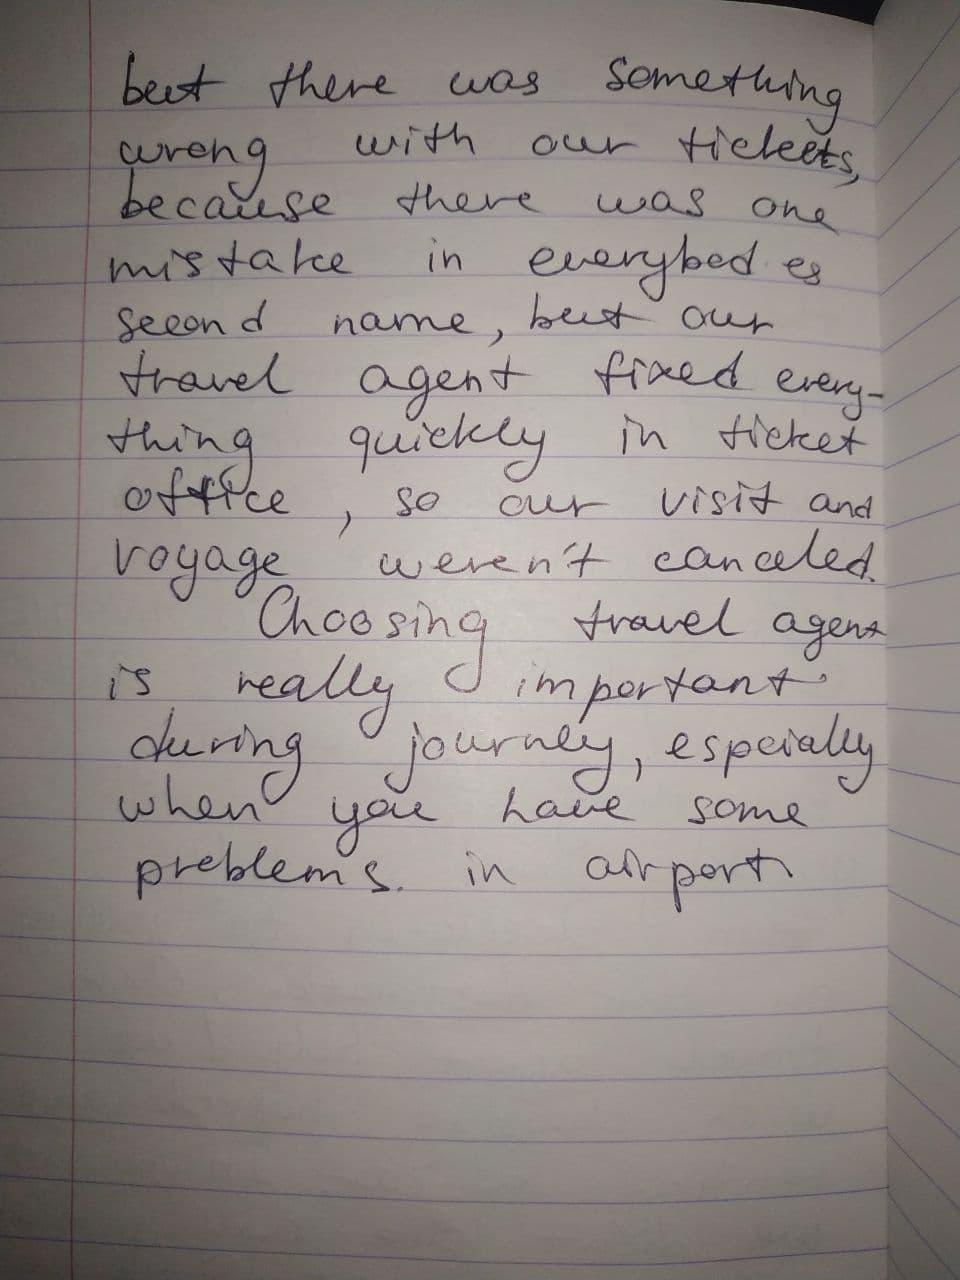 but there was something
wrong with our tickets,
because there was one
mistake in everybodies
second name, but our
travel agent fixed every-
thing quickly in ticket
office, so our visit and
voyage weren't canceled.
Choosing travel agent
is really important
during journey, especially
when you have some
problems. in airport